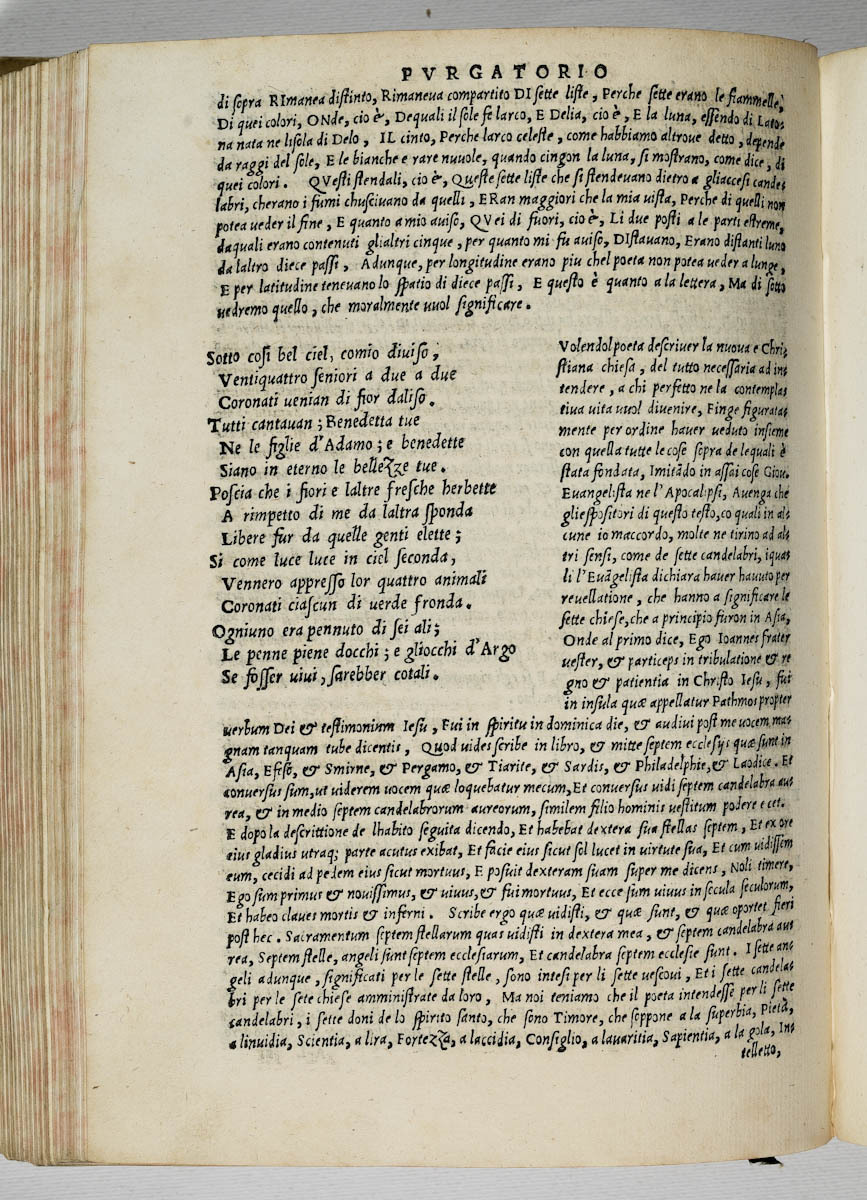 PVRGATORIO
di sopra RImanea distinto, Rimaneua compartito DI sette liste, Perche sette erano le fiammelle,
Di quei colori, ONde, cio è, Dequali il sole fe larco, E Delia, cio è, E la luna, essendo di Lato-
na nata ne lisola di Delo, IL cinto, Perche larco celeste, come habbiamo altroue detto, depende
da raggi del sole, E le bianche e rare nuuole, quando cingon la luna, si mostrano, come dice, di
quei colori. QVesti stendali, cio è, Queste sette liste che si stendeuano dietro a gliaccesi cande-
labri, cherano i fumi chusciuano da quelli, ERan maggiori che la mia uista, Perche di quelli non
potea ueder il fine, E quanto a mio auiso, QVei di fuori, cio è, Li due posti a le parti estreme,
daquali erano contenuti glialtri cinque, per quanto mi fu auiso, DIstauano, Erano distanti luno
da laltro diece passi, Adunque, per longitudine erano piu chel poeta non potea ueder a lunge,
E per latitudine teneuano lo spatio di diece passi, E questo è quanto a la lettera, Ma di sotto
uedremo quello, che moralmente uuol significare.
Sotto cosi bel ciel, comio diuiso,
Ventiquattro seniori a due a due
Coronati uenian di fior daliso.
Tutti cantauan; Benedetta tue
Ne le figlie d'Adamo; e benedette
Siano in eterno le bellezze tue.
Poscia che i fiori e laltre fresche herbette
A rimpetto di me da laltra sponda
Libere fur da quelle genti elette;
Si come luce luce in ciel seconda,
Vennero appresso lor quattro animali
Coronati ciascun di uerde fronda.
Ogniuno era pennuto di sei ali;
Le penne piene docchi; e gliocchi d'Argo
Se fosser uiui, sarebber cotali.
Volendol poeta descriuer la nuoua e Chri-
stiana chiesa, del tutto necessaria ad in-
tendere, a chi perfetto ne la contempla-
tiua uita uuol diuenire, Finge figurata-
mente per ordine hauer ueduto insieme
con quella tutte le cose sopra de lequali è
stata fondata, Imitādo in assai cose Giou.
Euangelista ne l'Apocalipsi, Auenga che
gliespositori di questo testo, co quali in al-
cune io maccordo, molte ne tirino ad al-
tri sensi, come de sette candelabri, iqua-
li l'Euāgelista dichiara hauer hauuto per
reuellatione, che hanno a significare le
sette chiese, che a principio furon in Asia,
Onde al primo dice, Ego Ioannes frater
uester, & particeps in tribulatione & re
gno & patientia in Christo Iesu, fui
in insula quæ appellatur Pathmos propter
uerbum Dei & testimonium Iesu, Fui in spiritu in dominica die, & audiui post me uocem ma-
gnam tanquam tube dicentis, Quod uides scribe in libro, & mitte septem ecclesijs quæ sunt in
Asia, Efeso, & Smirne, & Pergamo, & Tiarite, & Sardis, & Philadelphie, & Laodice. Et
conuersus sum, ut uiderem uocem quæ loquebatur mecum, Et conuersus uidi septem candelabra au-
rea, & in medio septem candelabrorum aureorum, similem filio hominis uestitum podere e cet.
E dopo la descrittione de lhabito seguita dicendo, Et habebat dextera sua stellas septem, Et ex ore
eius gladius utraq; parte acutus exibat, Et facie eius sicut sol lucet in uirtute sua, Et cum uidissem
eum, cecidi ad pedem eius sicut mortuus, E posuit dexteram suam super me dicens, Noli timere,
Ego sum primus & nouissimus, & uiuus, & fui mortuus, Et ecce sum uiuus in secula seculorum,
Et habeo claues mortis & inferni. Scribe ergo quæ uidisti, & quæ sunt, & quæ oportet fieri
post hec. Sacramentum septem stellarum quas uidisti in dextera mea, & septem candelabra au-
rea, Septem stelle, angeli sunt septem ecclesiarum, Et candelabra septem ecclesie sunt. I sette an-
geli adunque, significati per le sette stelle, sono intesi per li sette uescoui, Et i sette candela-
bri per le sete chiese amministrate da loro, Ma noi teniamo che il poeta intendesse per li sette
candelabri, i sette doni de lo spirito santo, che sono Timore, che soppone a la superbia, Pietà,
a linuidia, Scientia, a lira, Fortezza, a laccidia, Consiglio, a lauaritia, Sapientia, a la gola, In-
telletto,